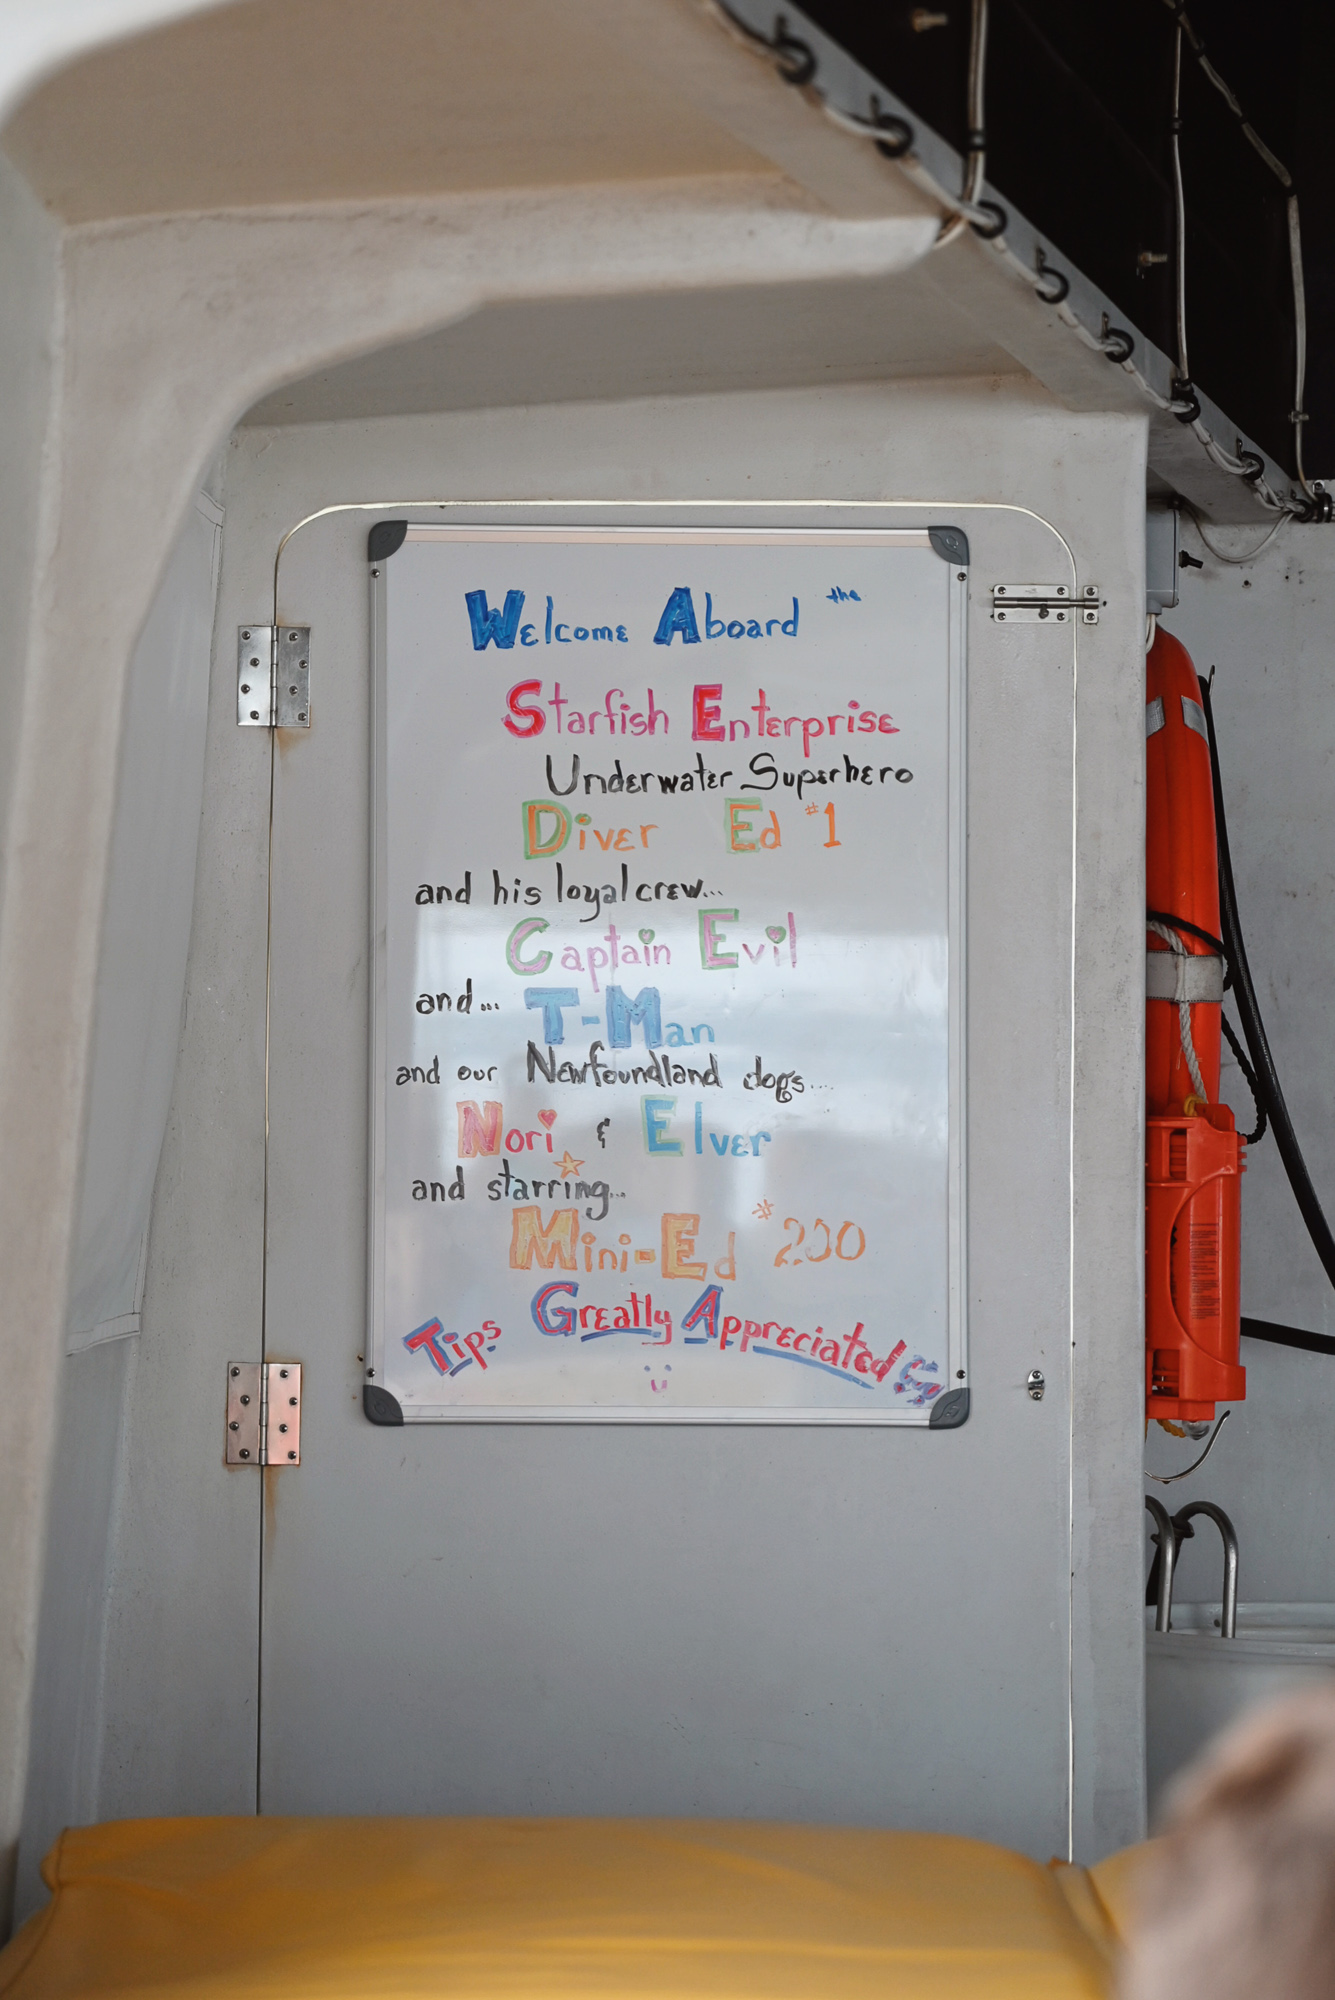 Welcome Aboard the
Starfish Enterprise
Underwater Superhero
Diver Ed #1
and his loyal crew...
Captain Evil
and... T-Man
and our Newfoundland dogs....
Nori & Elver
and starring...
Mini-Ed #200
Tips Greatly Appreciated